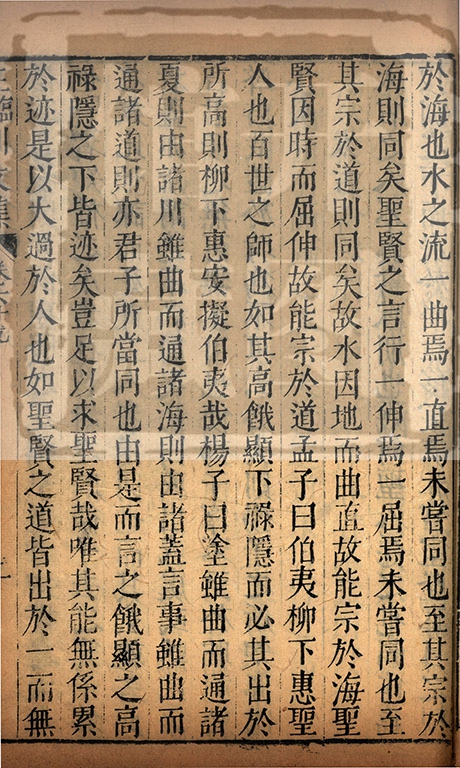 於海也水之流一曲焉一直焉未嘗同也至其宗於
海則同矣聖賢之言行一伸焉一屈焉未嘗同也至
其宗於道則同矣故水因地而曲直故能宗於海聖
賢因時而屈伸故能宗於道孟子曰伯夷柳下惠聖
人也百世之師也如其高餓顯下祿隱而必其出於
所高則柳下惠安擬伯夷哉楊子曰塗雖曲而通諸
夏則由諸川雖曲而通諸海則由諸蓋言事雖曲而
通諸道則亦君子所當同也由是而言之餓顯之高
祿隱之下皆迹矣豈足以求聖賢哉唯其能無係累
於迹是以大過於人也如聖賢之道皆出於一而無
王臨川文集 卷六十九